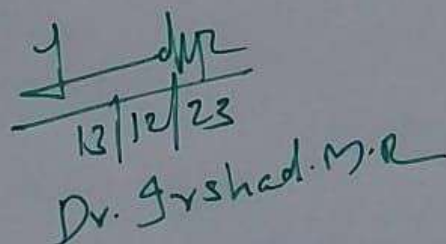 13/12/23
Dr. Irshad. M. R